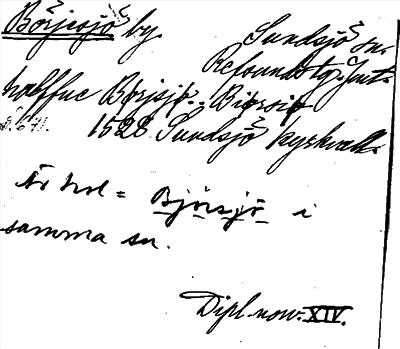 Börjesjö by.
Sundsjö sn.
Refsunds tg. Jmt.
halffue Börjsjö. Biörsiö
1528 Sundsjö kyrkvall.
Är nol = Björsjö i
samma sn.
Dipl. now. XIV.